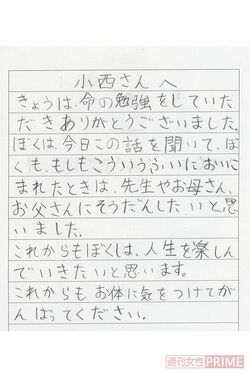 小西さんへ
きょうは、命の勉強をしていただ
だきありがとうございました。
ぼくは、今日この話を聞いて、ぼ
くも、もしもこういうふいにおいこ
まれたときは、先生やお母さん、
お父さんにそうだんしたいと思
いました。
これからもぼくは、人生を楽しん
でいきたいと思います。
これからもお体に気をつけてが
んばってください。
週刊女性PRIME